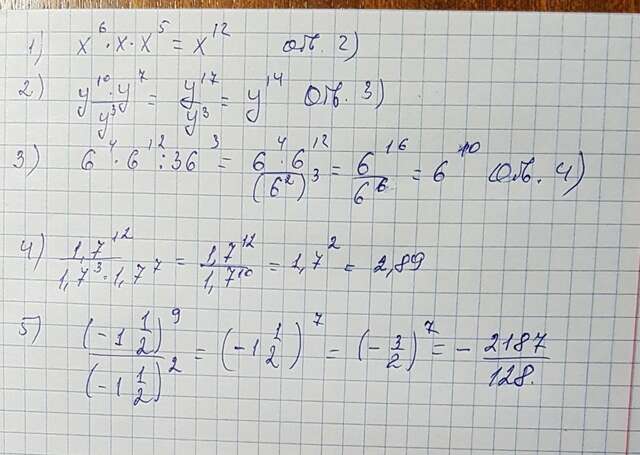 1) x⁶ · x · x⁵ = x¹² отв. 2)
2) y¹⁰ · y⁷ / y³ = y¹⁷ / y³ = y¹⁴ отв. 3)
3) 6⁴ · 6¹² : 36³ = 6⁴ · 6¹² / (6²)³ = 6¹⁶ / 6⁶ = 6¹⁰ отв. 4)
4) 1,7¹² / 1,7³ · 1,7⁷ = 1,7¹² / 1,7¹⁰ = 1,7² = 2,89
5) (-1 1/2)⁹ / (-1 1/2)² = (-1 1/2)⁷ = (-3/2)⁷ = - 2187 / 128.